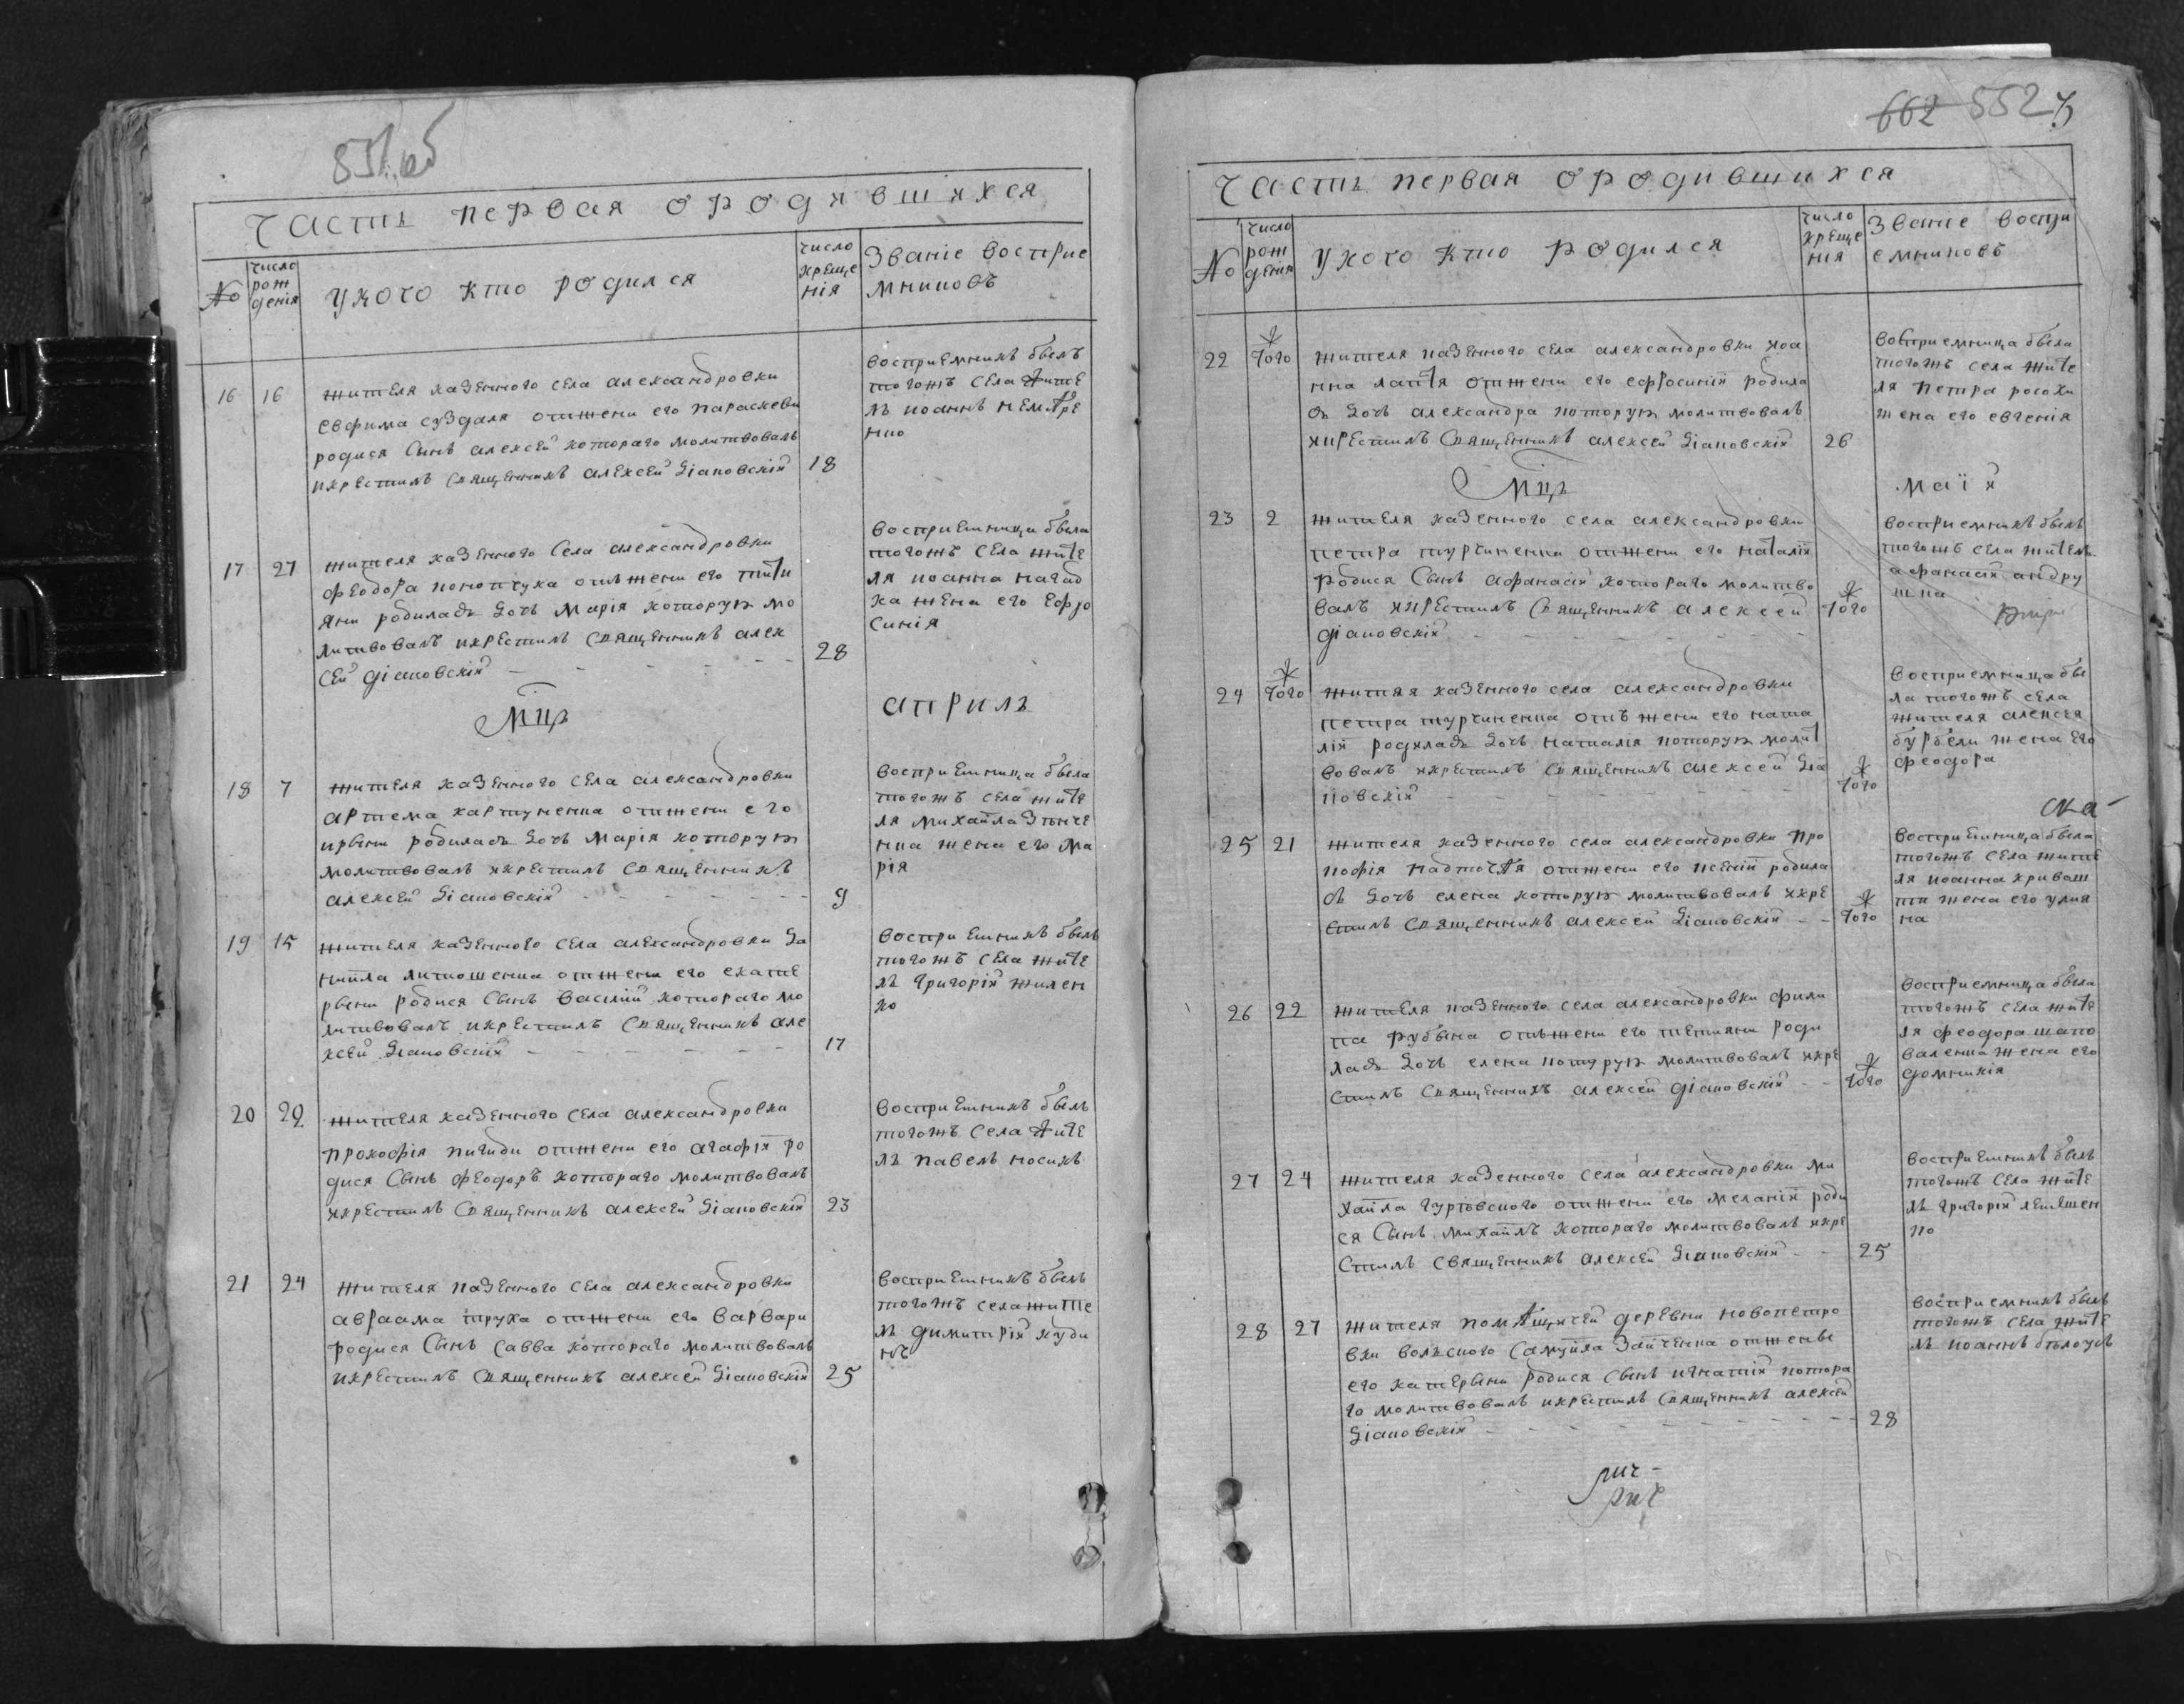 Часть первая ородившихся
No
число рождения
укого кто родился
число крещения
Званіе восприемниковъ
16 16
жителя казенного села александровки
евфима суздаля отжени его параскеви
родися сынъ алексей котораго молитвовалъ
икрестилъ священникъ алексей діановскій 18
восприемникъ былъ
тогожъ села жите
ль иоаннъ
17 27
жителя казенного села александровки
феодора отъ жени его тати
яни родиладь дочь марія которую мо
литвовалъ икрестилъ священникъ алек
сей діановскій 28
восприемница была
тогожъ села жите
ля иоанна
ка жена его ефро
синія
Мцъ априль
18 7
жителя казенного села александровки
артема картуненка отжени его
ирыни родиладь дочь марія которую
молитвовалъ икрестилъ священникъ
алексей діановскій 9
восприемница была
тогожъ села жите
ля михайла
нка жена его ма
рія
19 15
жителя казенного села александровки да
ниила литошенка отжени его екате
рыни родися сынъ василий котораго мо
литвовалъ икрестилъ священникъ але
ксей діановскій 17
восприемникъ былъ
тогожъ села жите
ль григорій жилен
ко
20 22
жителя казенного села александровки
прокофія пигиди отжени его агафіи ро
дися сынъ феодоръ котораго молитвовалъ
икрестилъ священникъ алексей діановскій 23
восприемникъ былъ
тогожъ села жите
ль павелъ носикъ
21 24
жителя казенного села александровки
авраама труха отжени его варвари
родися сынъ савва котораго молитвовалъ
икрестилъ священникъ алексей діановскій 25
восприемникъ былъ
тогожъ села жите
ль димитрій куди
нъ
662 552
Часть первая ородившихся
No
число рождения
укого кто родился
число крещения
Званіе восприемниковъ
22 того
жителя казенного села александровки иоа
нна лаптя отжени его ефросиніи родила
сь дочь александра которую молитвовалъ
икрестилъ священникъ алексей діановскій 26
восприемница была
тогожъ села жите
ля петра росохи
жена его евгенія
Мцъ маій
23 2
жителя казенного села александровки
петра турчиненка отжени его наталіи
родися сынъ афанасій котораго молитво
валъ икрестилъ священникъ алексей того
діановскій
восприемникъ былъ
тогожъ села житель
афанасій андру
шка
24 того
жителя казенного села александровки
петра турчиненка отъ жени его ната
ліи родиладь дочь наталія которую молит
вовалъ икрестилъ священникъ алексей діа
новскій того
восприемница бы
ла тогожъ села
жителя алексея
бурбели жена его
феодора
25 21
жителя казенного села александровки про
кофія надточія отжени его ксеніи родила
сь дочь елена которую молитвовалъ икре
стилъ священникъ алексей діановскій того
восприемница была
тогожъ села жите
ля иоанна криваш
ти жена его улия
на
26 22
жителя казенного села александровки фили
па рубана отъжени его тетияни роди
ладь дочь елена которую молитвовалъ икре
стилъ священникъ алексей діановскій того
восприемница была
тогожъ села жите
ля феодора шапо
валенка жена его
домникія
27 24
жителя казенного села александровки ми
хаила гуртовского отжени его меланіи роди
ся сынъ михаилъ котораго молитвовалъ икре
стилъ священникъ алексей діановскій 25
восприемникъ былъ
тогожъ села жите
ль григорій
28 27
жителя помѣщичей деревни новопетро
вки волского самуила зайченка отжены
его катерыни родися сынъ игнатій котора
го молитвовалъ икрестилъ священникъ алексей
діановскій 28
восприемникъ былъ
тогожъ села жите
ль иоаннъ бѣлоусъ